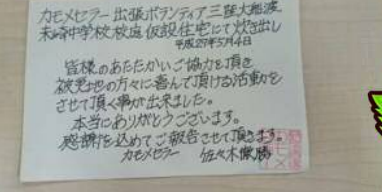 カモメセラー 出張ボランティア三陸大船渡
末崎中学校校庭仮設住宅にて炊き出し
平成27年5月4日
皆様のあたたかいご協力を頂き
被災地の方々に喜んで頂ける活動を
させて頂く事が出来ました。
本当にありがとうございます。
感謝を込めてご報告させて頂きます。
カモメセラー 佐々木 勝